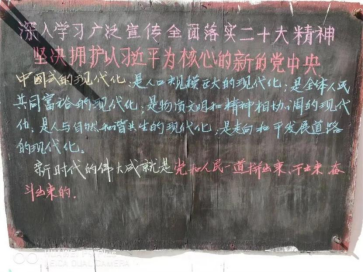 深入学习广泛宣传全面落实二十大精神
坚决拥护以习近平为核心的新的党中央
中国式的现代化,是人口规模巨大的现代化;是全体人民
共同富裕的现代化;是物质文明和精神相协调的现代
化,是人与自然和谐共生的现代化,是走向和平发展道路
的现代化.
新时代的伟大成就是党和人民一道拼出来、干出来、奋
斗出来的.